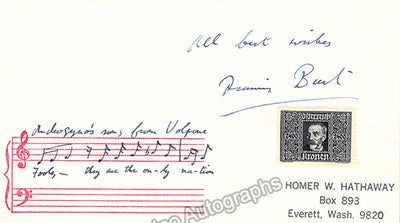 All best wishes
Francis Burt
Androgyno's song from Volpone
Fools, — they are the on-ly na-tion
HOMER W. HATHAWAY
Box 893
Everett, Wash. 9820
Autographs